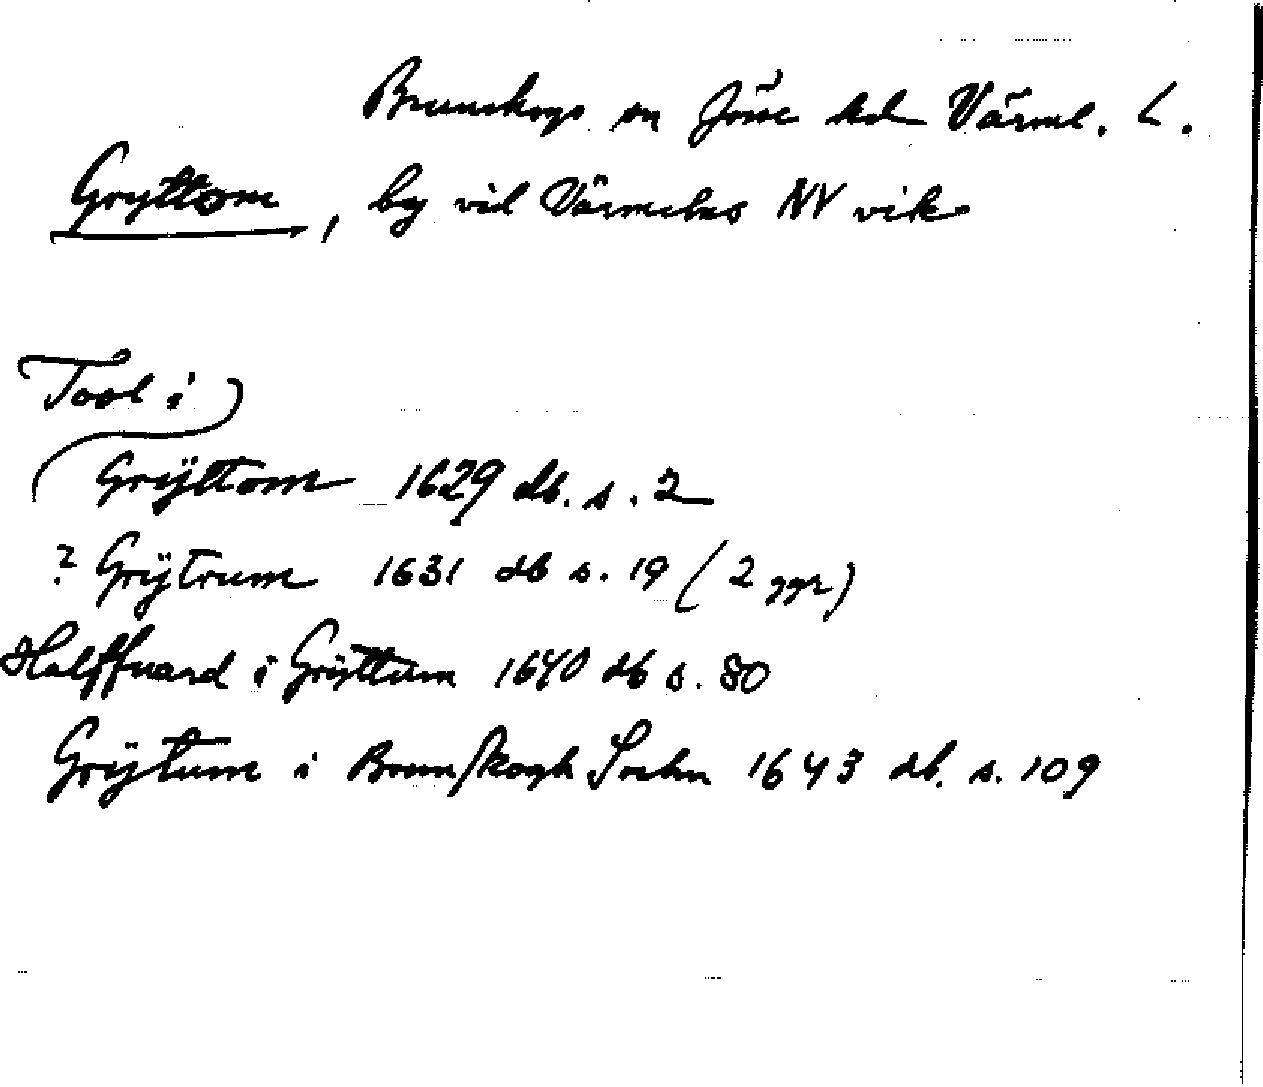 Brunskogs sn Jösse hd Värml. L.
Gryttom, by vid Värmelns NV vik
Tool i
Grÿttom 1629 db. s. 2
? Grÿtrum 1631 db s. 19 (2 ggr)
Halffuard i Grÿttum 1640 db s. 80
Grÿtum i Brunskogh Sochn 1643 db. s. 109